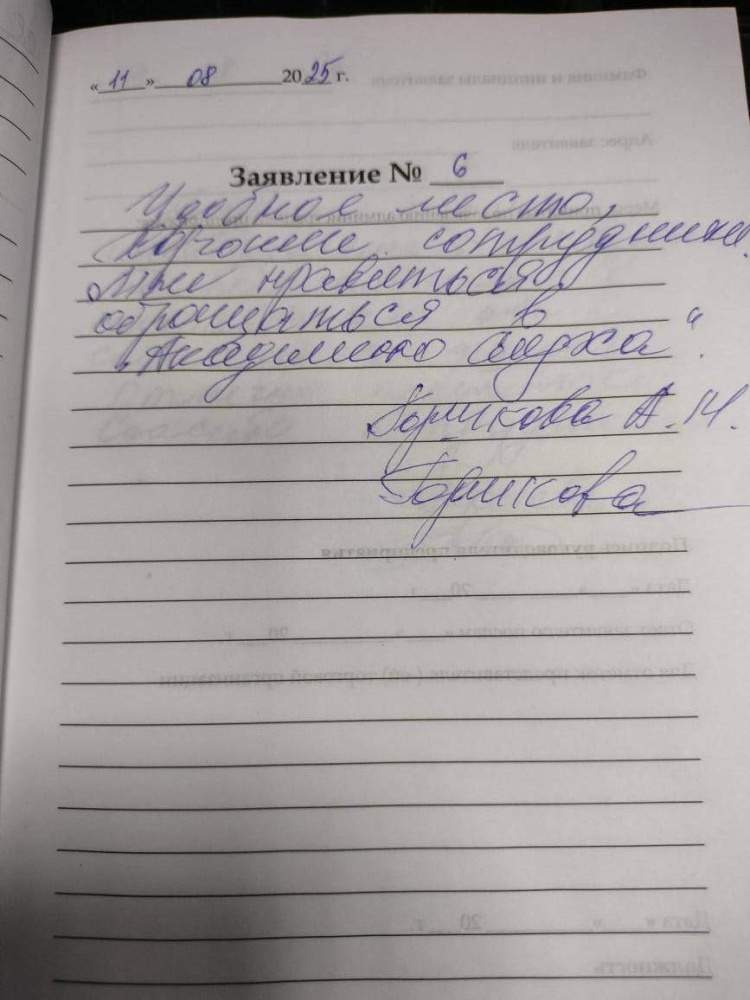 «11» 08 2025 г.
Заявление № 6
Удобное место,
хорошие сотрудники.
Мне нравиться
обращаться в
"Академию слуха".
А.М.